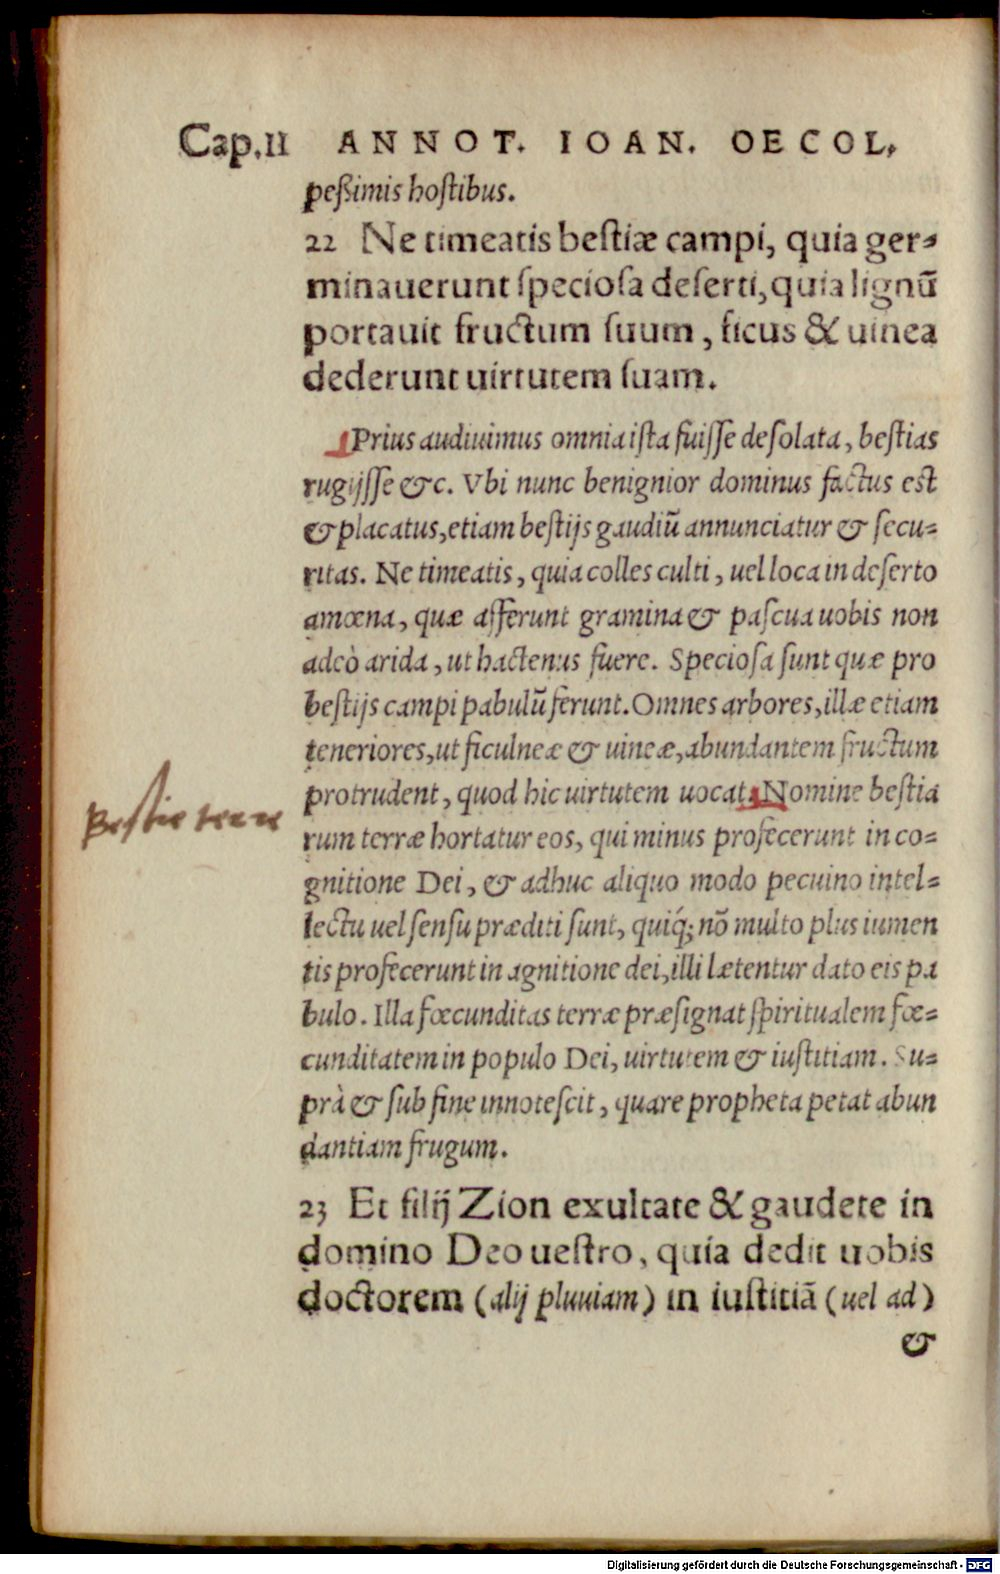 Cap.II ANNOT. IOAN. OECOL.
peßimis hostibus.
22 Ne timeatis bestiæ campi, quia ger-
minauerunt speciosa deserti, quia lignū
portauit fructum suum, ficus & uinea
dederunt uirtutem suam.
Prius audiuimus omnia ista fuisse desolata, bestias
rugijsse &c. Vbi nunc benignior dominus factus est
& placatus, etiam bestijs gaudiū annunciatur & secu-
ritas. Ne timeatis, quia colles culti, uel loca in deserto
amœna, quæ afferunt gramina & pascua uobis non
adeò arida, ut hactenus fuere. Speciosa sunt quæ pro
bestijs campi pabulū ferunt. Omnes arbores, illæ etiam
teneriores, ut ficulneæ & uineæ, abundantem fructum
protrudent, quod hic uirtutem uocat. Nomine bestia
Bestie terre
rum terræ hortatur eos, qui minus profecerunt in co-
gnitione Dei, & adhuc aliquo modo pecuino intel-
lectu uel sensu præditi sunt, quiq́; nō multo plus iumen
tis profecerunt in agnitione dei, illi lætentur dato eis pa
bulo. Illa fœcunditas terræ præsignat spiritualem fœ-
cunditatem in populo Dei, uirtutem & iustitiam. Su-
prà & sub fine innotescit, quare propheta petat abun
dantiam frugum.
23 Et filij Zion exultate & gaudete in
domino Deo uestro, quia dedit uobis
doctorem (alij pluuiam) in iustitiā (uel ad)
&
Digitalisierung gefördert durch die Deutsche Forschungsgemeinschaft - DFG